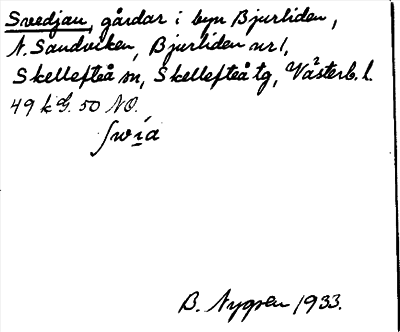 Svedjan, gårdar i byn Bjurliden,
N. Sandviken, Bjurliden nr 1,
Skellefteå m, Skellefteå tg, Västerb. l.
49 k G. 50 NO.
B. Nygren 1933.